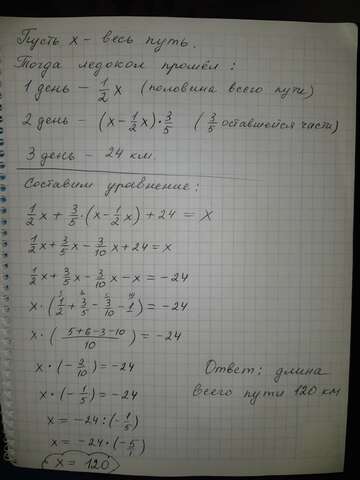 Пусть x - весь путь.
Тогда ледокол прошёл:
1 день - 1/2 x (половина всего пути)
2 день - (x - 1/2 x) · 3/5 (3/5 оставшейся части)
3 день - 24 км.
Составим уравнение:
1/2 x + 3/5 · (x - 1/2 x) + 24 = x
1/2 x + 3/5 x - 3/10 x + 24 = x
1/2 x + 3/5 x - 3/10 x - x = -24
x · (1/2 + 3/5 - 3/10 - 1) = -24
x · ((5+6-3-10)/10) = -24
x · (-2/10) = -24
x · (-1/5) = -24
x = -24 : (-1/5)
x = -24 · (-5/1)
x = 120
Ответ: длина
всего пути 120 км